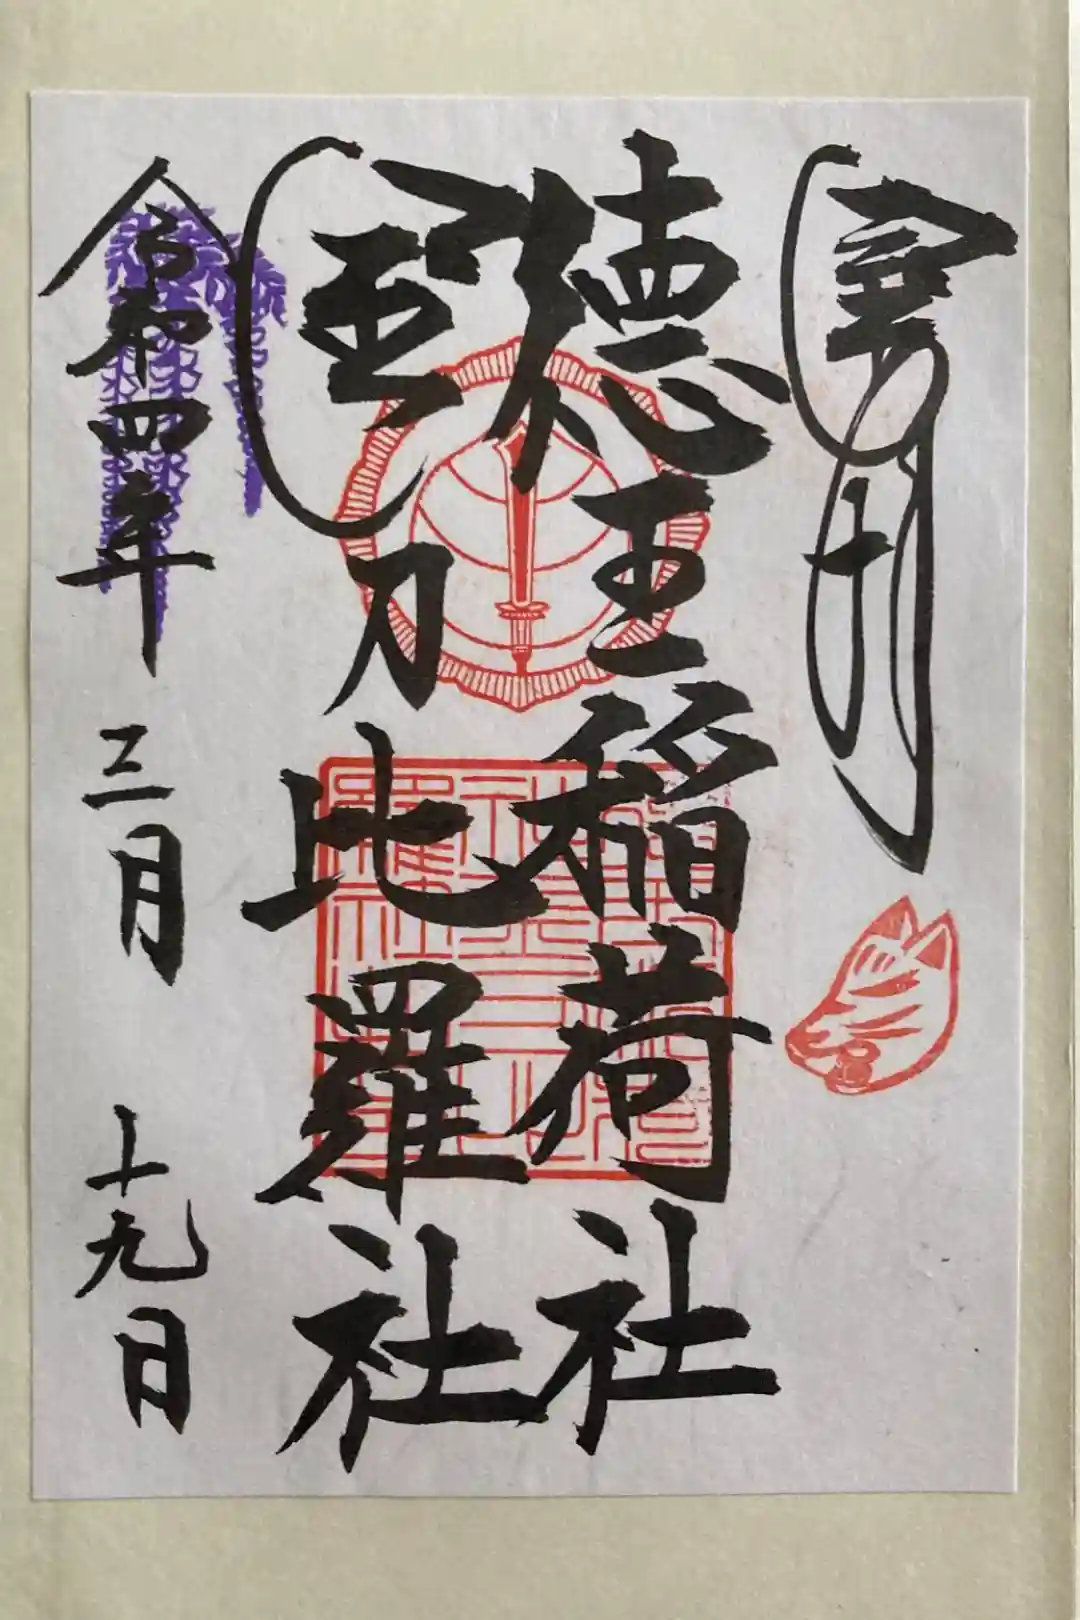 奉拝
徳王稲荷社
金刀比羅社
令和四年三月十九日